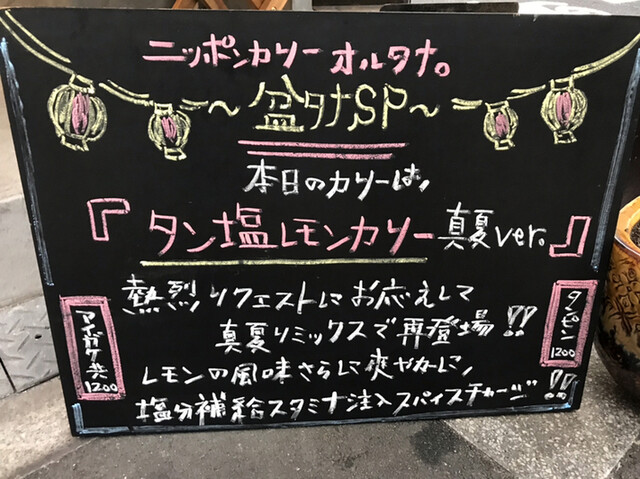 ニッポンカリー オルタナ。
〜盆タナSP〜
本日のカリーは、
『タン塩レモンカリー真夏ver.』
熱烈リクエストにお応えして
真夏リミックスで再登場!!
レモンの風味さらに爽やかに、
塩分補給スタミナ注入スパイスチャージ!!
アイガケ共
1200
タンピン
1200